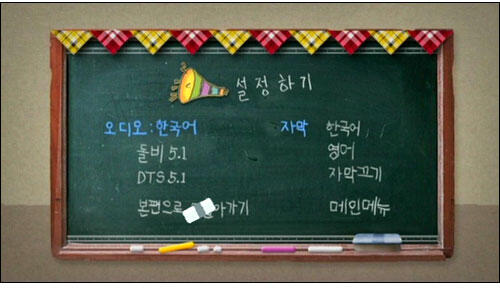 설정하기
오디오:한국어
돌비 5.1
DTS 5.1
자막 한국어
영어
자막끄기
본편으로 아가기
메인메뉴